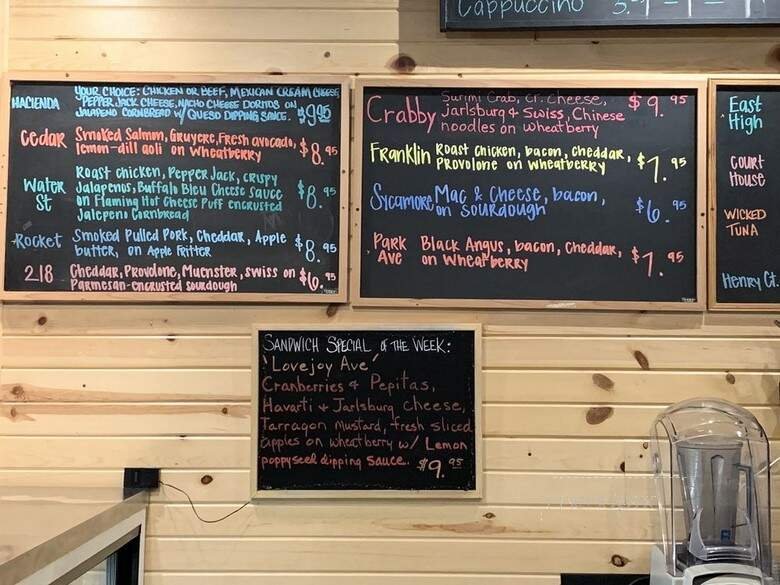 Cappuccino
HACIENDA
YOUR CHOICE: CHICKEN OR BEEF, MEXICAN CREAM CHEESE,
PEPPER JACK CHEESE, NACHO CHEESE DORITOS ON
JALAPENO CORNBREAD W/ QUESO DIPPING SAUCE. $9.95
Cedar
Smoked Salmon, Gruyere, Fresh avocado,
lemon-dill aoli on wheatberry $8.95
Water
St
Roast chicken, Pepper Jack, crispy
Jalapenos, Buffalo Bleu Cheese sauce
on Flaming Hot Cheese Puff encrusted
Jalepeno Cornbread
$8.95
Rocket
Smoked Pulled Pork, Cheddar, Apple
butter, on Apple Fritter $8.95
218
Cheddar, Provolone, Muenster, swiss on
Parmesan-encrusted sourdough $6.95
Crabby
Surimi Crab, Cr. Cheese,
Jarlsburg & Swiss, Chinese
noodles on wheatberry
$9.95
Franklin
Roast Chicken, bacon, cheddar,
Provolone on wheatberry $7.95
Sycamore
Mac & Cheese, bacon,
on sourdough $6.95
Park
Ave
Black Angus, bacon, Cheddar,
on wheatberry $7.95
East
High
Court
House
WICKED
TUNA
Henry Ct.
SANDWICH SPECIAL OF THE WEEK:
'Lovejoy Ave'
Cranberries & Pepitas,
Havarti & Jarlsburg Cheese,
Tarragon Mustard, fresh sliced
apples on wheatberry w/ Lemon
poppyseed dipping sauce. $9.95